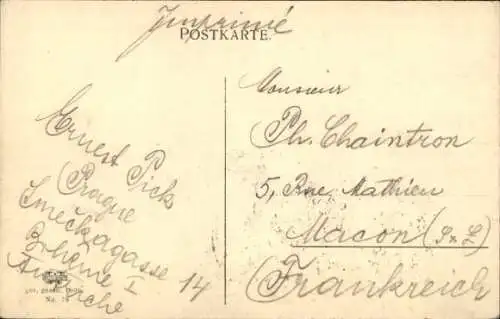 Imprimé
POSTKARTE.
Ernest Pick
Prague
Smečkagasse
14
Bohême I
Autriche
No.
Monsieur
Ph. Chaintron
5, Rue Mathieu
Macon (S. & L)
(Frankreich